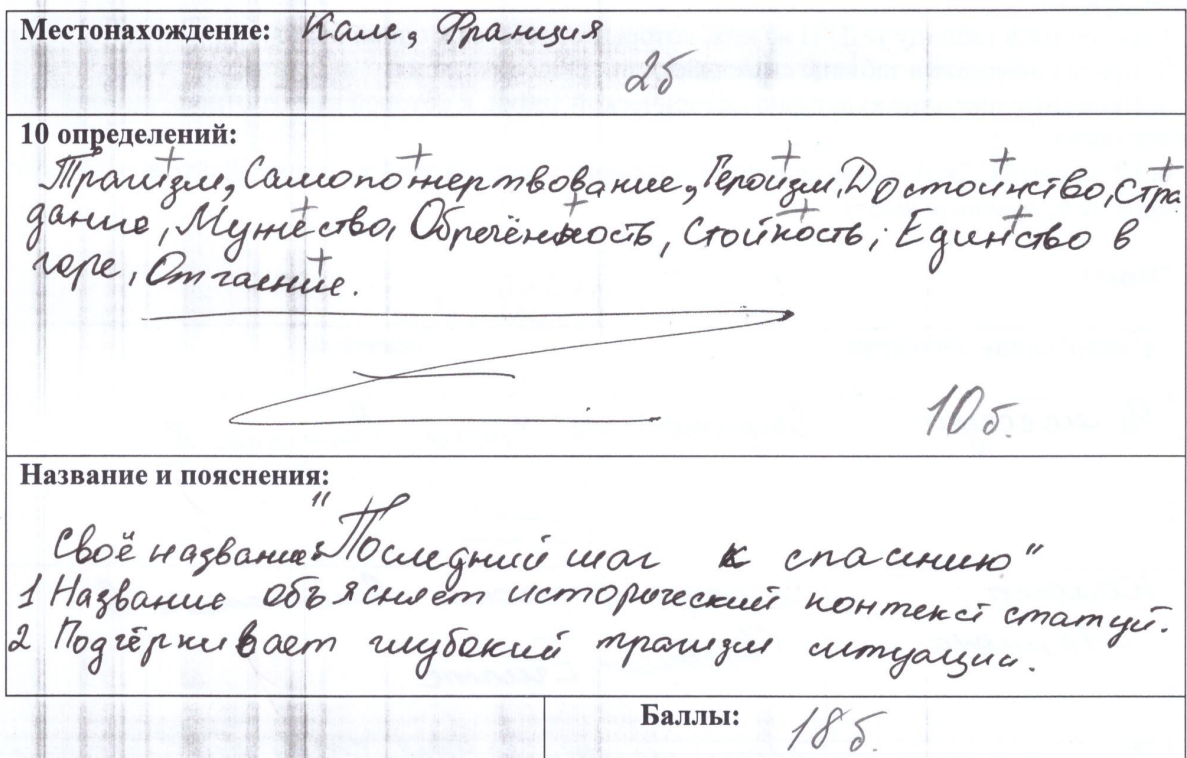 Местонахождение: Кале, Франция
2б
10 определений:
Трагизм, Самопожертвование, Героизм, Достоинство, Стра
дание, Мужество, Обречённость, Стойкость, Единство в
горе, Отчаение.
10б.
Название и пояснения:
Своё название: "Последний шаг к спасинию"
1 Название объясняет исторический контекст статуй.
2 Подчёркивает глубокий трагизм ситуации.
Баллы: 18б.